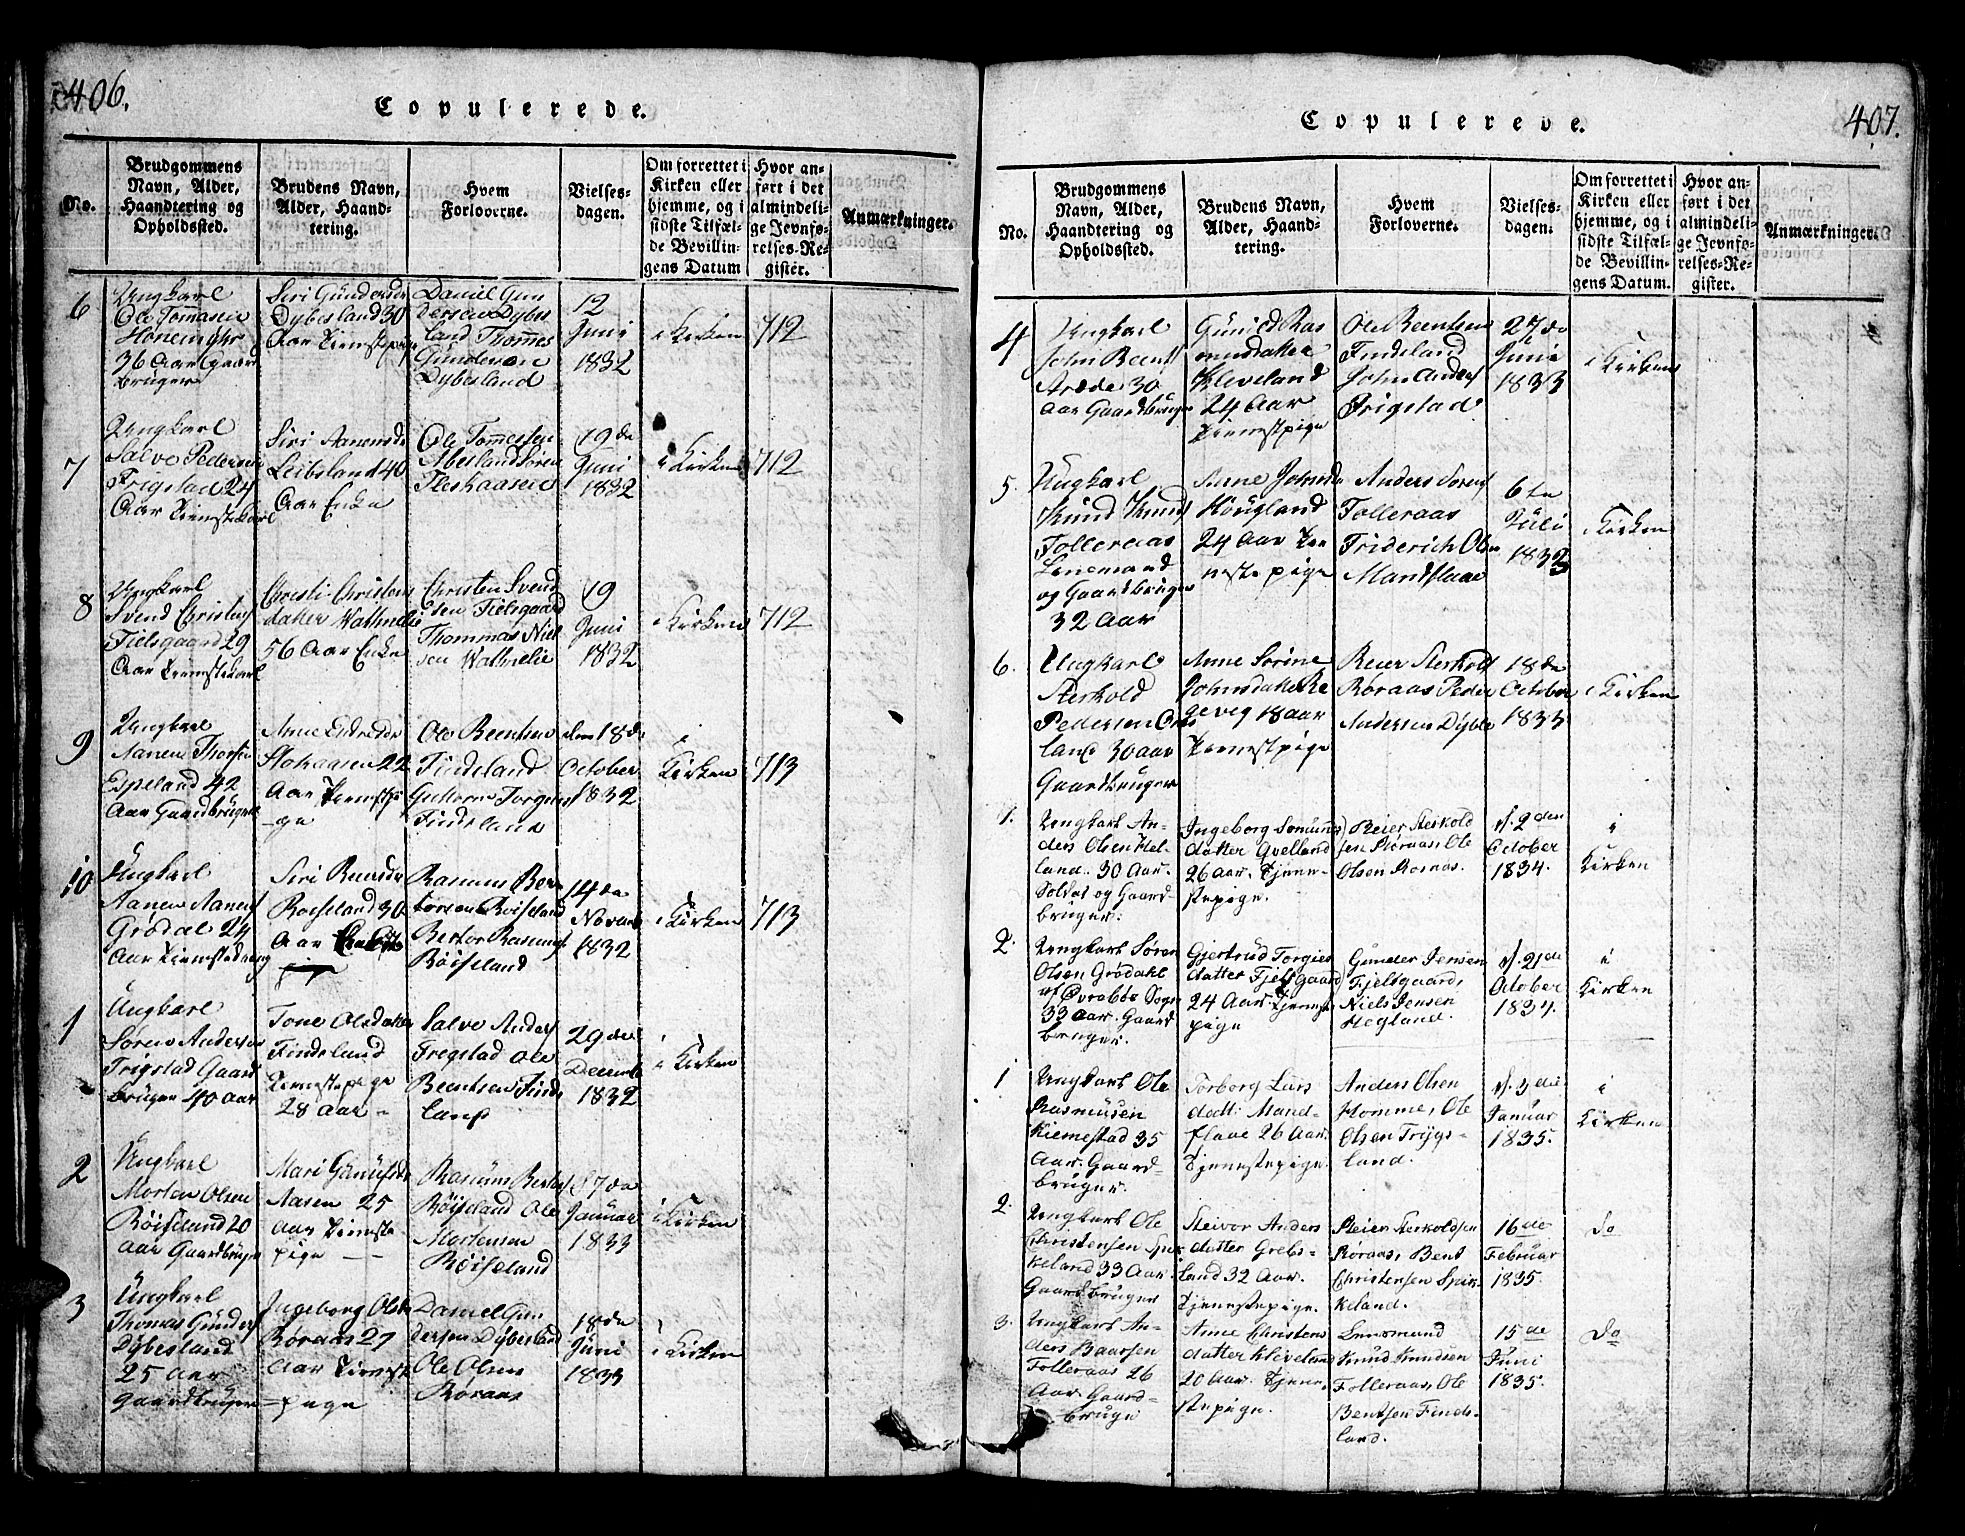 406.
Copulerede.
No.
Brudgommens
Navn, Alder,
Haandtering og
Opholdssted.
Brudens Navn,
Alder, Haand-
tering.
Hvem
Forloverne.
Vielses-
dagen.
Om forrettet i
Kirken eller
hjemme, og i
sidste Tilfæl-
de Bevillin-
gens Datum
Hvor an-
ført i det
almindeli-
ge Jevnfø-
relses-Re-
gister.
Anmærkninger.
6
Ungkarl
Ole Tomasen
Honemyhr
36 Aar Gaard
bruger
Siri Gundersdr
Dybesland 30
Aar Tienestpige
Daniel Gun
dersen Dybes
land Thommes
Gundersen
Dybesland
12
Juni
1832
i Kirken
712
7
Ungkarl
Salve Pedersen
Frigstad 24
Aar Tienestekarl
Siri Aanensdr
Leibsland 40
Aar Enke
Ole Tomesen
Abesland Sören
Fleshaasen
19de
Juni
1832
i Kirken
712
8
Ungkarl
Svend Christens
Fielsgaard 29
Aar Tienestekarl
Christi Christens
datter Wathnelie
56 Aar Enke
Christen Svend
sen Fielsgaard
Thommas Niel
sen Wathnelie
19
Juni
1832
i Kirken
712
9
Ungkarl
Aanen Thorsen
Espeland 42
Aar Gaardbruger
Anne Endresdr
Stohaasen 22
Aar Tienestpi
-ge
Ole Beentsen
Findeland
Guttorm Torgus
Findeland
den 18de
October
1832
i
Kirken
713
10
Ungkarl
Aanen Aanens
Grödal 24
Aar Tienestedreng
Siri Reiersdr
Roiseland 30
Aar
Rasmus Ber
torsen Roiseland
Bertor Rasmus
Röiseland
14de
Novemb
1832
i Kirken
713
1
Ungkarl
Sören Anderson
Frigstad Gaard
bruger 40 aar
Tone Olsdatter
Findeland
Tienestepige
28 aar -
Salve Anders
Fregstad Ole
Beentsen Find
land
29de
Decemb
1832
i Kirken
2
Ungkarl
Morten Olsen
Röiseland 20
aar Gaardbruger
Mari Gunuldsdr
Aasen 25
aar Tieneste
pige
Rasmus Bertors
Röiseland Ole
Mortensen
Röiseland
17de
Januar
1833
i Kirken
3
Ungkarl
Thomas Gunders
Dybesland
25 aar
gaardbruger
Ingeborg Olsdr
Röraas 27
aar Tienest
=pige
Daniel Gun
dersen Dybesland
Ole Olsen
Röraas
18de
Juni
1833
i Kirken
407.
Copulerede.
No.
Brudgommens
Navn, Alder,
Haandtering og
Opholdssted.
Brudens Navn,
Alder, Haand-
tering.
Hvem
Forloverne.
Vielses-
dagen.
Om forrettet i
Kirken eller
hjemme, og i
sidste Tilfæl-
de Bevillin-
gens Datum.
Hvor an-
ført i det
almindeli-
ge Jevnfø-
relses-Re-
gister.
Anmærkninger.
4
Ungkarl
John Bents
Aredes 30
aar Gaardbruger
Gunild Ras
musdatter
Kleveland
24 Aar
Tienestpige
Ole Beentsen
Findeland
John Anders
Frigstad
27de
Junii
1833
i Kirken
5.
Ungkarl
Knud Knuds
Folleraas
Lensmand
og Gaardbruger
32 Aar
Anne Johnsdr
Höugland
24 Aar Tie
nestepige
Anders Sorens
Folleraas
Friderich Olsen
Mandflaae
6te
Juli
1833
i Kirken
6.
Ungkarl
Sterkold
Pedersen
land 30 aar
Gaardbruger
Anne Sorine
Johnsdatter Re
geveg 18 aar
Tienestpige
Reier Sterkolds
Röraas Peder
Andersen Dyble
18de
October
1833
i Kirken
1.
Ungkarl An-
ders Olsen Hel-
land. 30 Aar.
Soldat og Gaard-
bruger.
Ingeborg Somunds
datter Qvelland
26 aar. Tjene-
stepige.
Reier Sterkold
sen Röraas, Ole
Olsen Roraas.
d. 2den
October
1834.
i
Kirken
2.
Ungkarl Søren
Olsen Grødahl
af Øvrebøe Sogn
33 aar. Gaard
bruger.
Gjertrud Torgies
datter Fjelsgaard
24 Aar. Tjeneste
pige
Gunder Jensen
Fjelsgaard,
Niels Jensen
Høgland.
d. 21de
October
1834.
i
Kirken
1
Ungkarl Ole
Rasmussen
Kiemestad 35
Aar. Gaard-
bruger.
Torborg Lars
datt: Mand-
flaae 26 Aar.
Tjenestepige.
Anders Olsen
Homme, Ole
Olsen Trygs-
land.
d. 3die
Januar
1835.
i
Kirken
2.
Ungkarl Ole
Christensen Spik
keland 33 Aar.
Gaardbruger
Steivor Anders
datter Grebs-
land 32 Aar.
Tjenestepige.
Reier Sterkoldsen
Roraas, Bent
Christensen Spik
keland.
16de
Februar
1835.
do
3.
Ungkarl An-
ders Baarsen
Folleraas 26
Aar. Gaard-
bruge
Anne Christens
datter Kleveland
20 Aar. Tjene-
stepige.
Lensmand
Knud Knudsen
Folleraas, Ole
Bentsen Finds-
land.
15de
Juni
1835.
do